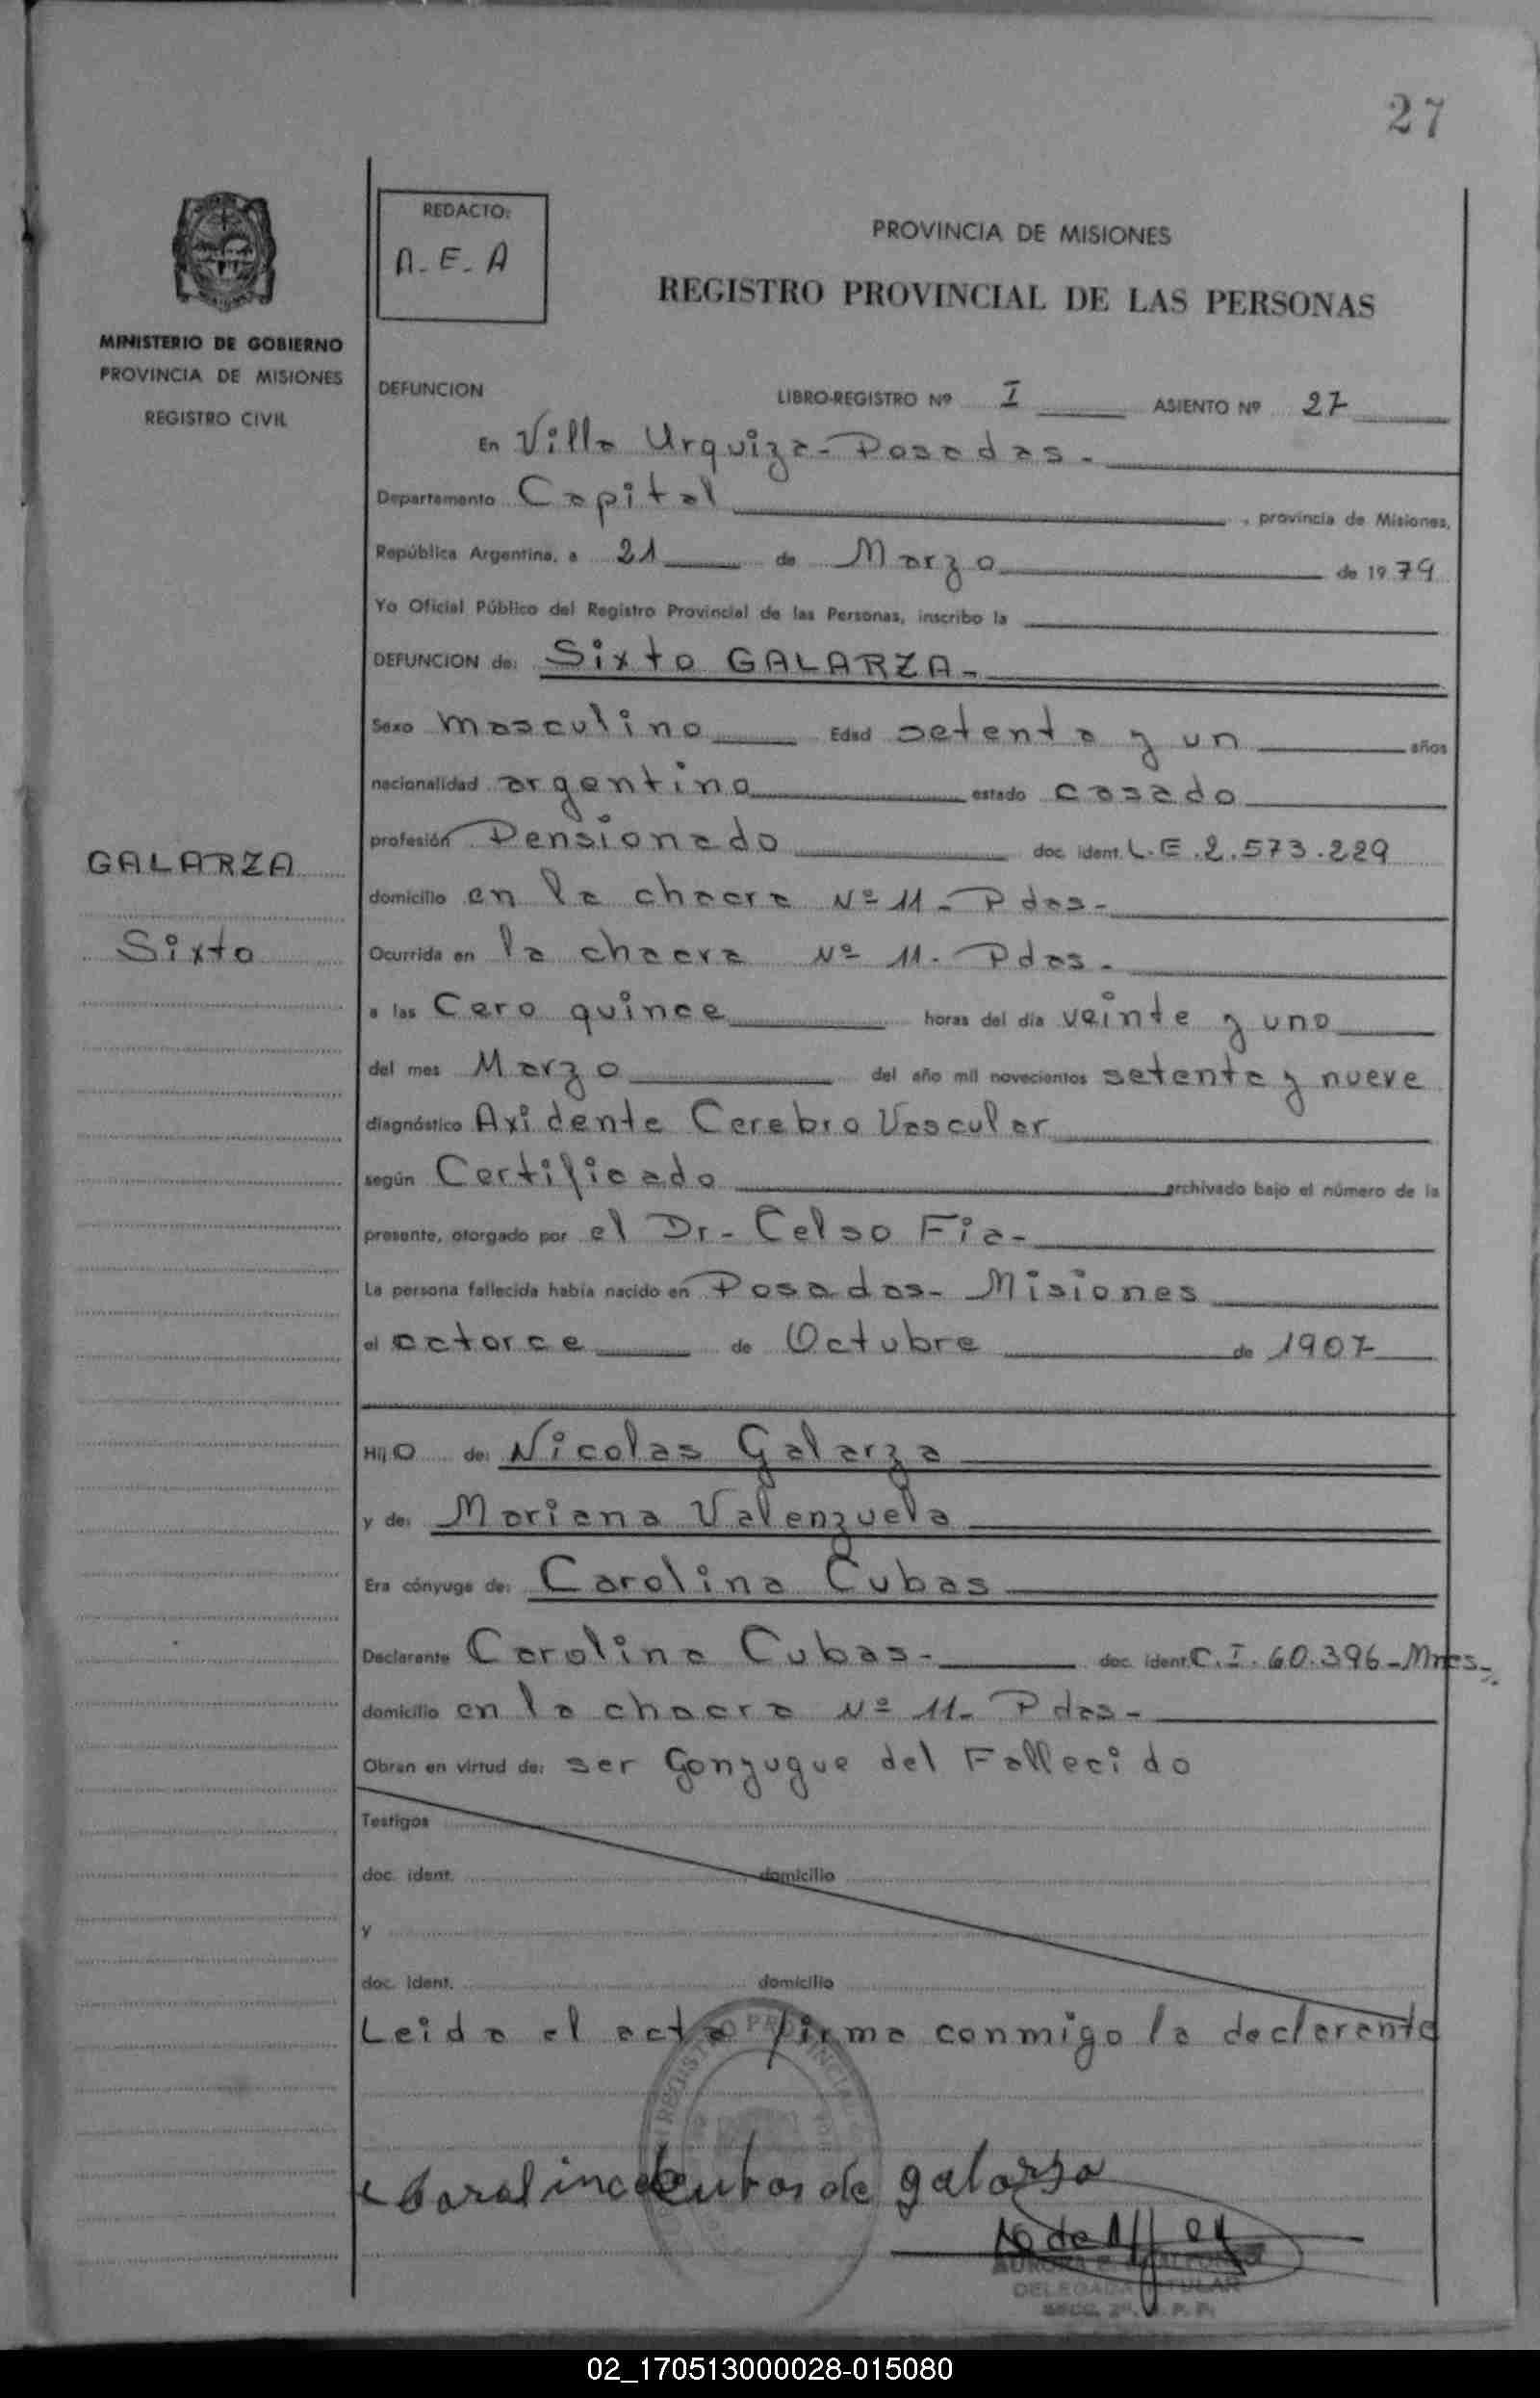 27
REDACTO:
A-E-A
PROVINCIA DE MISIONES
REGISTRO PROVINCIAL DE LAS PERSONAS
MINISTERIO DE GOBIERNO
PROVINCIA DE MISIONES
REGISTRO CIVIL
DEFUNCION LIBRO-REGISTRO Nº I ASIENTO Nº 27
En Villa Urquiza - Posadas -
Departamento Capital , provincia de Misiones,
República Argentina, a 21 de Marzo de 1979
Yo Oficial Público del Registro Provincial de las Personas, inscribo la
DEFUNCION de: Sixto GALARZA -
Sexo masculino Edad setenta y un años
nacionalidad argentino estado casado
profesión Pensionado doc. ident. L.E.2.573.229
GALARZA
Sixto
domicilio en la chacra Nº 11 - Pdas -
Ocurrida en la chacra Nº 11 - Pdas -
a las Cero quince horas del día veinte y uno
del mes Marzo del año mil novecientos setenta y nueve
diagnóstico Axidente Cerebro Vascular
según Certificado archivado bajo el número de la
presente, otorgado por el Dr - Celso Fia -
La persona fallecida había nacido en Posadas - Misiones
el catorce de Octubre de 1907
Hijo de: Nicolas Galarza
y de: Mariana Valenzuela
Era cónyuge de: Carolina Cubas
Declarante Carolina Cubas - doc. ident. C.I. 60.396 - Mnes -
domicilio en la chacra Nº 11 - Pdas -
Obran en virtud de: ser Gonyugue del Fallecido
Testigos
doc. ident. domicilio
y
doc. ident. domicilio
Leida el acta firma conmigo la declarante
Carolina Cubas de galarza
DELEGADA TITULAR
02_170513000028-015080